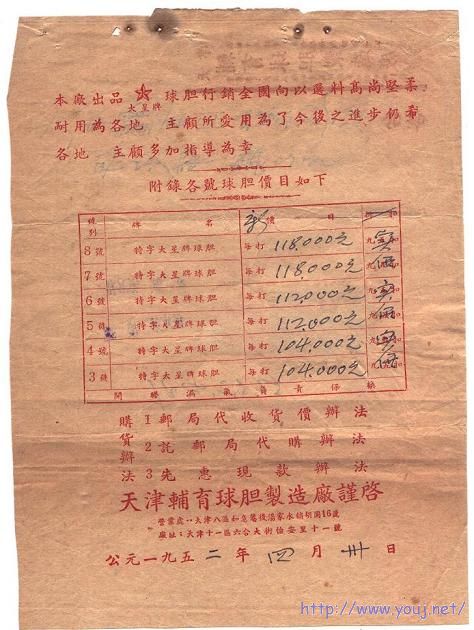 本廠出品 大星牌 球胆行銷全國向以選料高尚堅柔
耐用為各地 主顧所愛用為了今後之進步仍希
各地 主顧多加指導為幸
附錄各號球胆價目如下
號別 牌名 新價目
8號 特字大星牌球胆 每打 118.000元 實價
7號 特字大星牌球胆 每打 118.000元
6號 特字大星牌球胆 每打 112.000元 實價
5號 特字大星牌球胆 每打 112.000元
4號 特字大星牌球胆 每打 104.000元 實價
3號 特字大星牌球胆 每打 104.000元
開膠漏氣負責保換
購貨辦法
1 郵局代收貨價辦法
2 託郵局代購辦法
3 先惠現款辦法
天津輔育球胆製造廠謹啓
營業處：天津八區和急菴後湯家水舖胡同16號
廠址：天津十一區六合大街怡安里十一號
公元一九五二年四月卅日
http://www.youj.net/